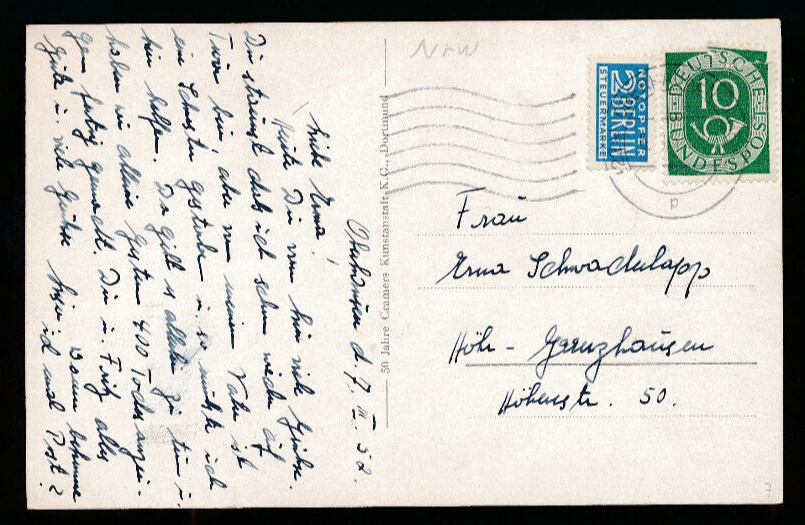 NrW
NOTOPFER
2 BERLIN
STEUERMARKE
DEUTSCHE
10
BUNDESPOST
p
50 Jahre Cramers Kunstanstalt K.G., Dortmund
Frau
Erna Schwachulapp
Höhr - Grenzhausen
Höhenstr. 50.
d. 7. III. 52.
Liebe Erna!
Dir von hier viele Grüße.
Du staunst daß ich schon wieder auf
Tour bin, aber von meinem Vater ist
ein Schwester gestorben u. so mußte ich
hin helfen. Da gibt es allerhand zu tun u.
haben wir alleine gestern 400 Todesanzei-
gen fertig gemacht. Dir u. Fritz alles
Gute u. viele Grüße
Wann bekomme
ich mal Post?
7